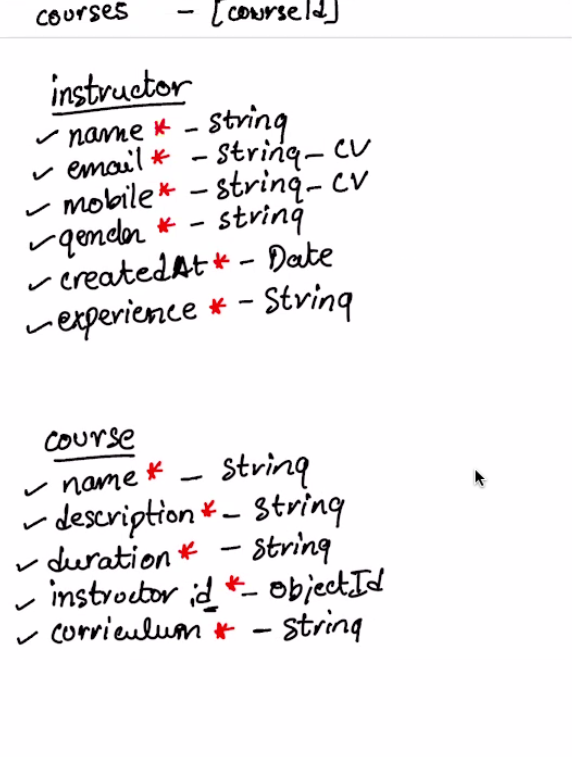 courses - [courseId]
instructor
✓ name * - string
✓ email * - string - CV
✓ mobile * - string - CV
✓ gender * - string
✓ createdAt * - Date
✓ experience * - String
course
✓ name * - string
✓ description * - string
✓ duration * - string
✓ instructor id * - objectId
✓ curriculum * - string